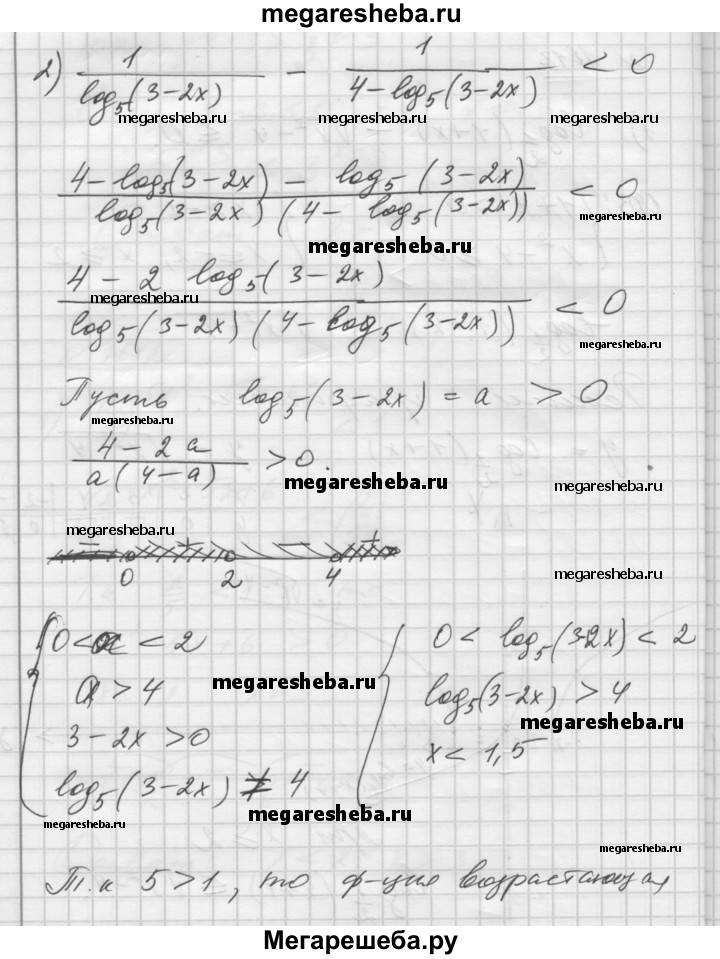 megaresheba.ru
2) 1/log₅(3-2x) - 1/(4-log₅(3-2x)) < 0
megaresheba.ru megaresheba.ru megaresheba.ru
(4-log₅(3-2x) - log₅(3-2x))/(log₅(3-2x)(4- log₅(3-2x))) < 0
megaresheba.ru
(4-2 log₅(3-2x))/(log₅(3-2x)(4-log₅(3-2x))) < 0
megaresheba.ru megaresheba.ru
Пусть log₅(3-2x) = a > 0
megaresheba.ru
(4-2a)/(a(4-a)) > 0.
megaresheba.ru megaresheba.ru
megaresheba.ru
- + - +
0 2 4
megaresheba.ru
0 < a < 2 0 < log₅(3-2x) < 2
a > 4 log₅(3-2x) > 4
megaresheba.ru megaresheba.ru
3-2x > 0 x < 1,5
log₅(3-2x) ≠ 4
megaresheba.ru megaresheba.ru
Т.к 5 > 1, то ф-ция возрастающая
megaresheba.ru
Мегарешеба.ру